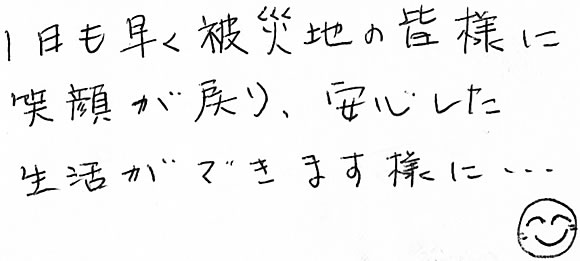 1日も早く被災地の皆様に
笑顔が戻り、安心した
生活ができます様に…